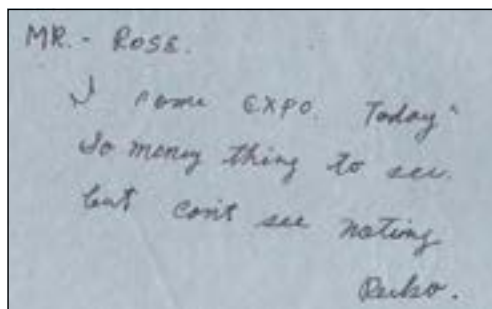 MR. - ROSE.
I come EXPO. Today"
So money thing to see.
but con't see noting